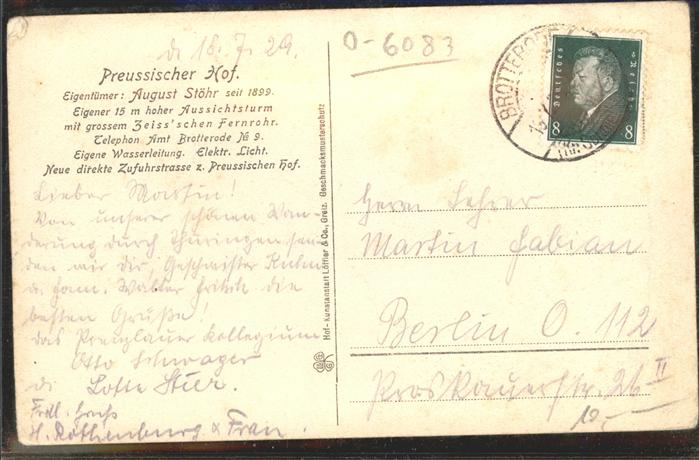 d. 18. 7. 29.
0-6083
Preussischer Hof.
Eigentümer: August Stöhr seit 1899.
Eigener 15 m hoher Aussichtsturm
mit grossem Zeiss'schen Fernrohr.
Telephon Amt Brotterode № 9.
Eigene Wasserleitung. Elektr. Licht.
Neue direkte Zufuhrstrasse z. Preussischen Hof.
Lieber Martin!
Von unserer schönen Wan-
derung durch Thüringen sen-
den wir dir, Geschwister
u. fam. die
besten Grüße!
das Prenzlauer Kollegium
Otto Schwager
Lotte Stier.
Frdl. Gruß
H. Rothenburg & Frau.
Hof-Kunstanstalt Löffler & Co., Greiz. Geschmacksmusterschutz
BROTTERODE
Deutsches Reich
8 8
Herrn Lehrer
Martin Fabian
Berlin O. 112
Proskauerstr. 26 II
10,-